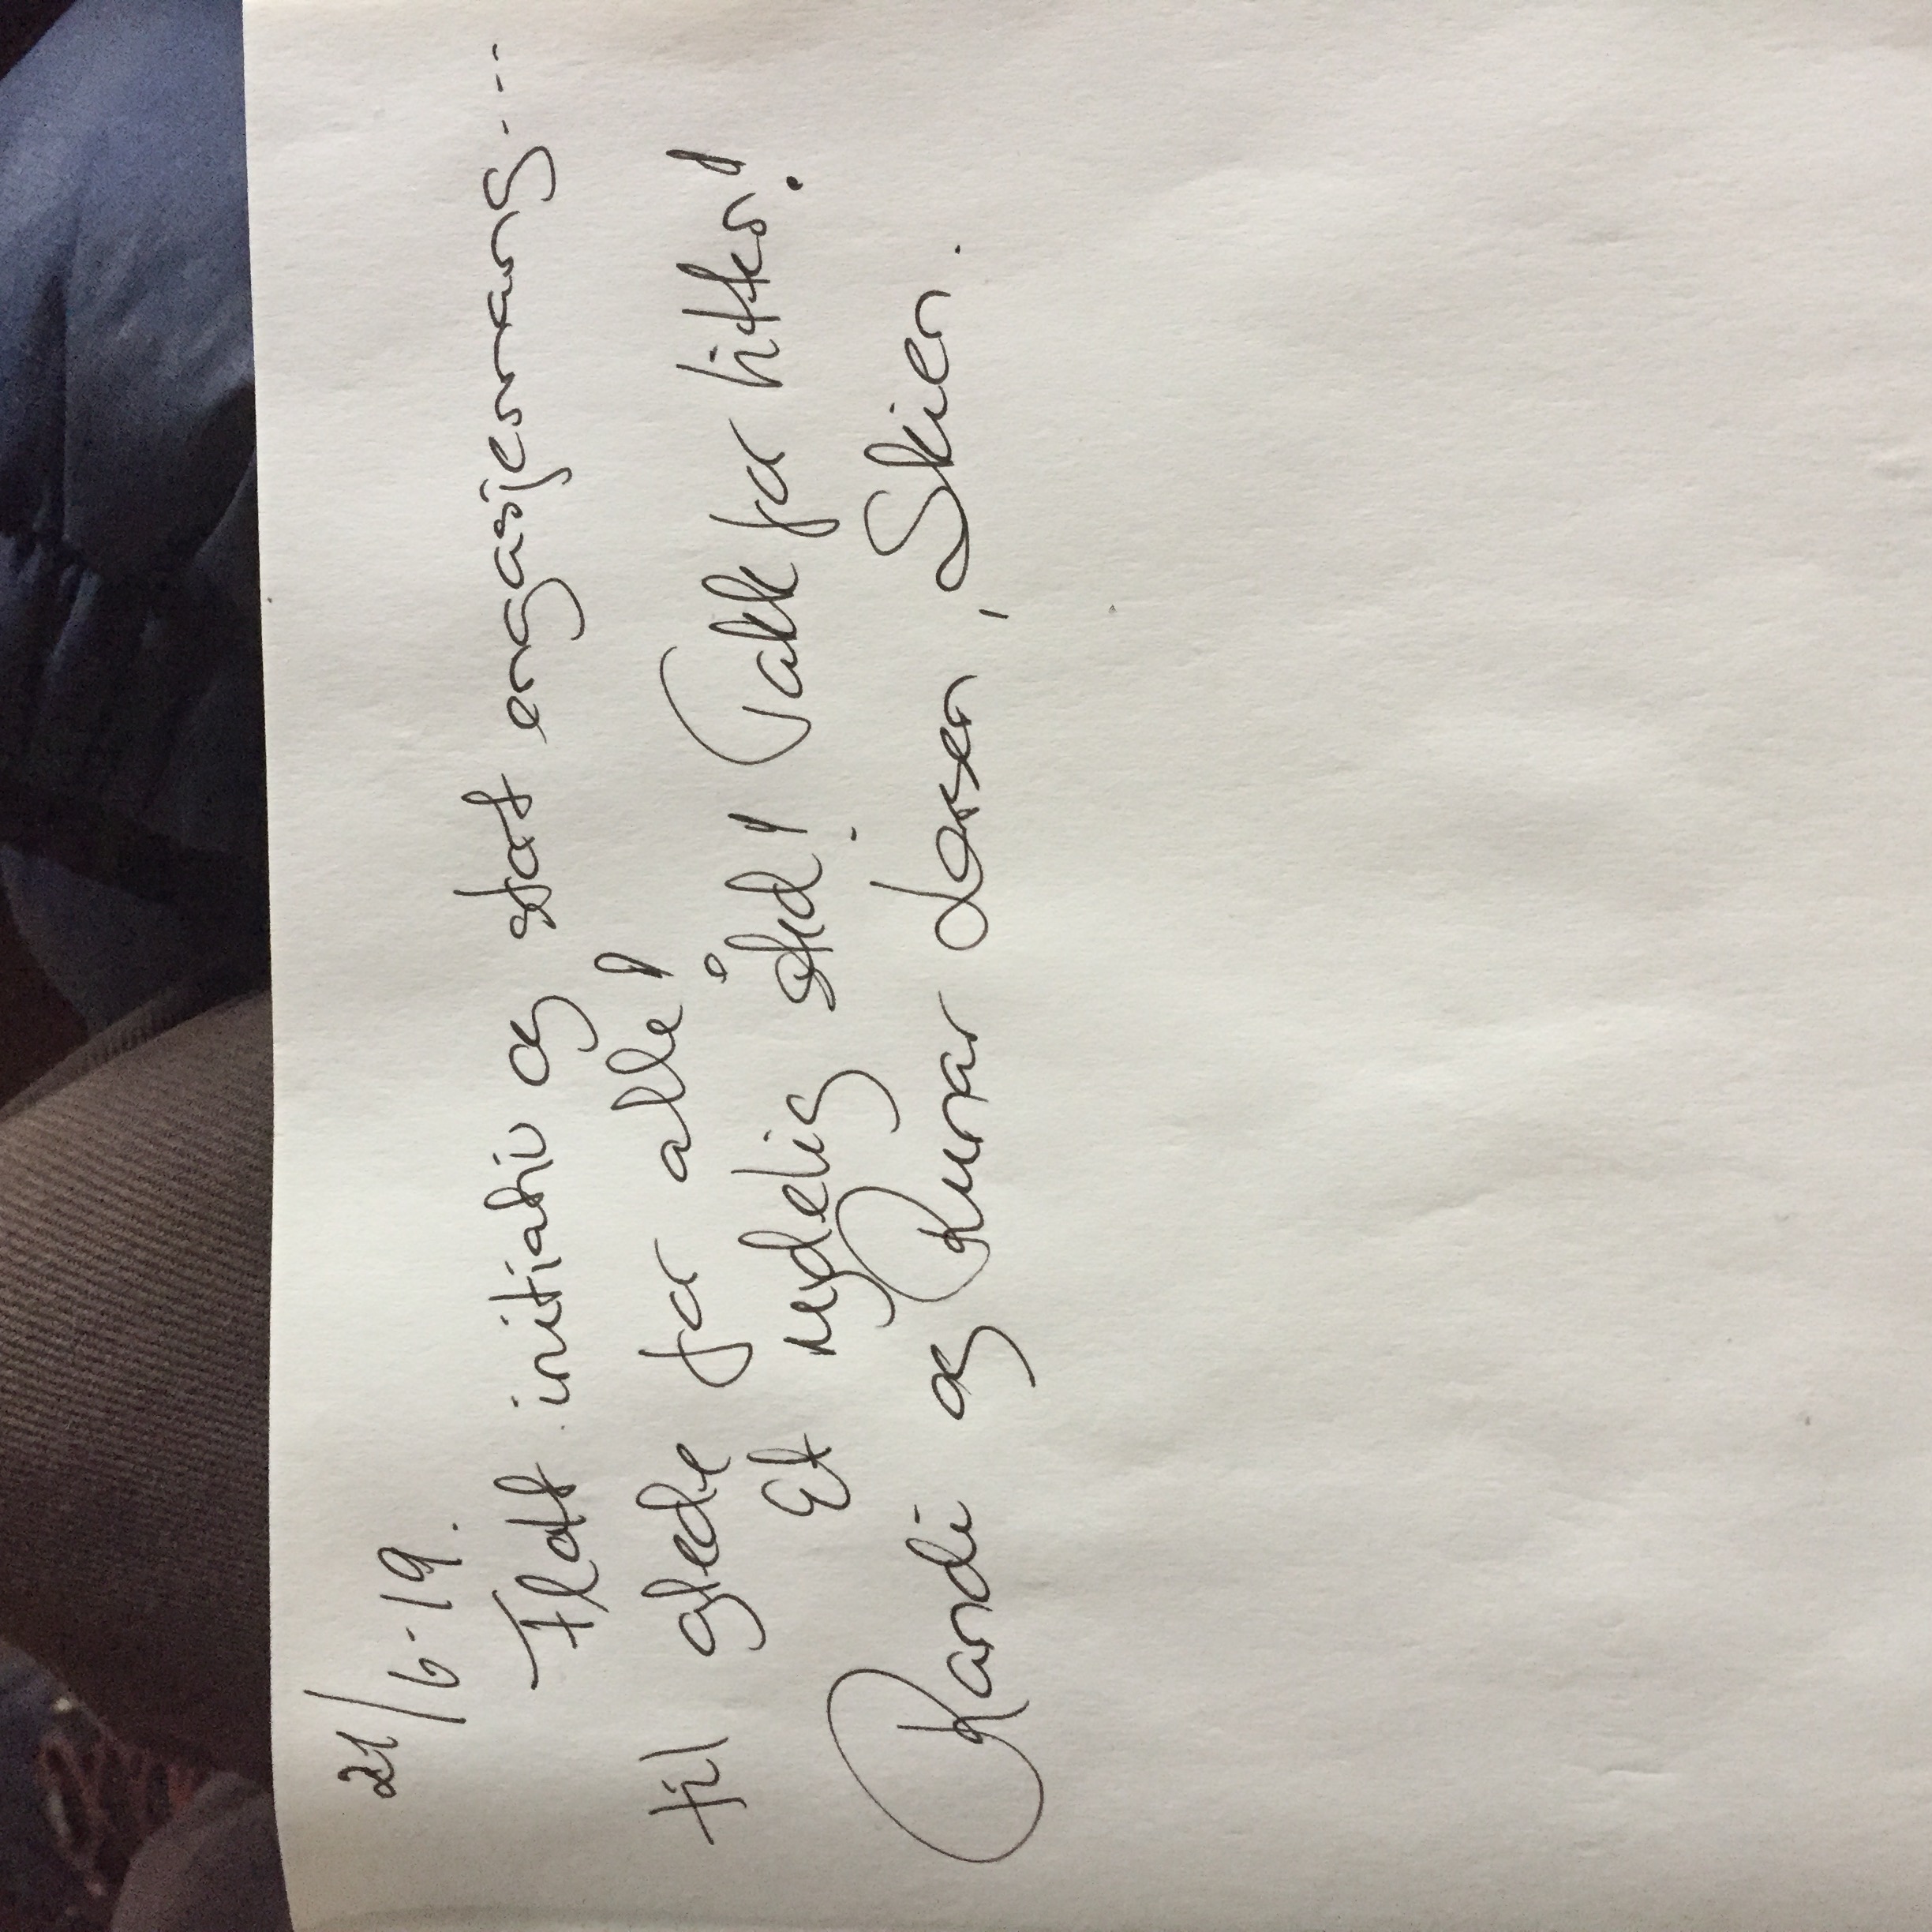 21/6-19.
Flott initiativ og stort engasjemang...
til glede for alle!
Et nydelig sted! Takk for titten!
Randi og Runar Larsen, Skien.